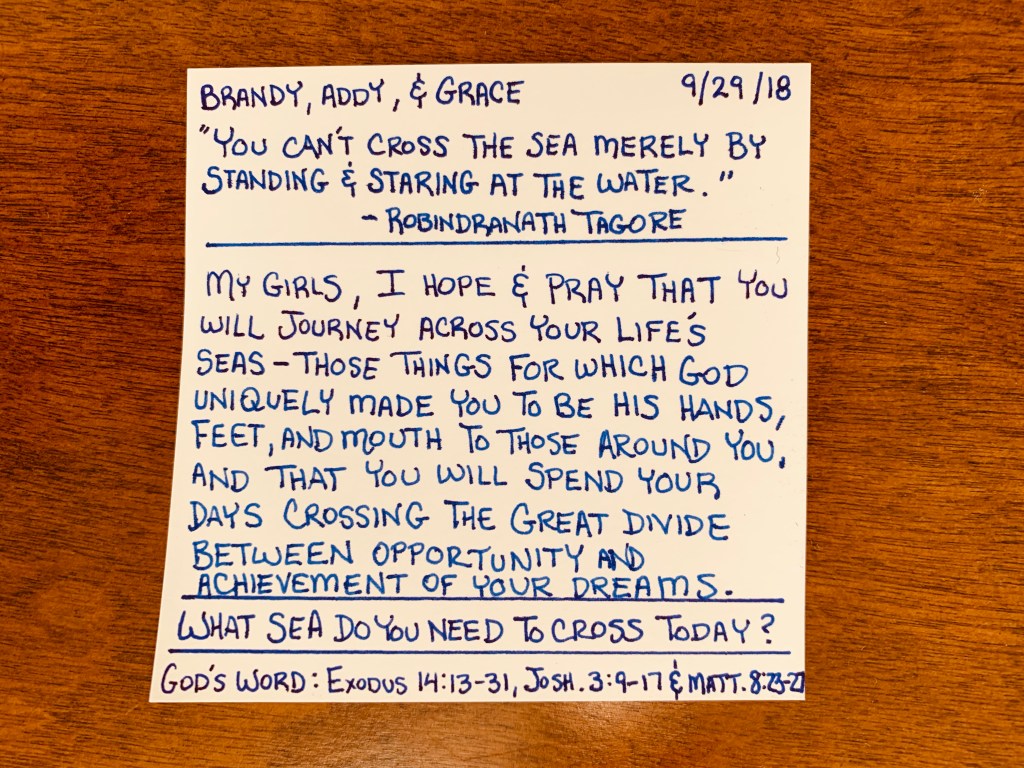 BRANDY, ADDY, & GRACE 9/29/18
"YOU CAN'T CROSS THE SEA MERELY BY
STANDING & STARING AT THE WATER."
- ROBINDRANATH TAGORE
MY GIRLS, I HOPE & PRAY THAT YOU
WILL JOURNEY ACROSS YOUR LIFE'S
SEAS - THOSE THINGS FOR WHICH GOD
UNIQUELY MADE YOU TO BE HIS HANDS,
FEET, AND MOUTH TO THOSE AROUND YOU,
AND THAT YOU WILL SPEND YOUR
DAYS CROSSING THE GREAT DIVIDE
BETWEEN OPPORTUNITY AND
ACHIEVEMENT OF YOUR DREAMS.
WHAT SEA DO YOU NEED TO CROSS TODAY?
GOD'S WORD: EXODUS 14:13-31, JOSH. 3:9-17 & MATT. 8:23-27